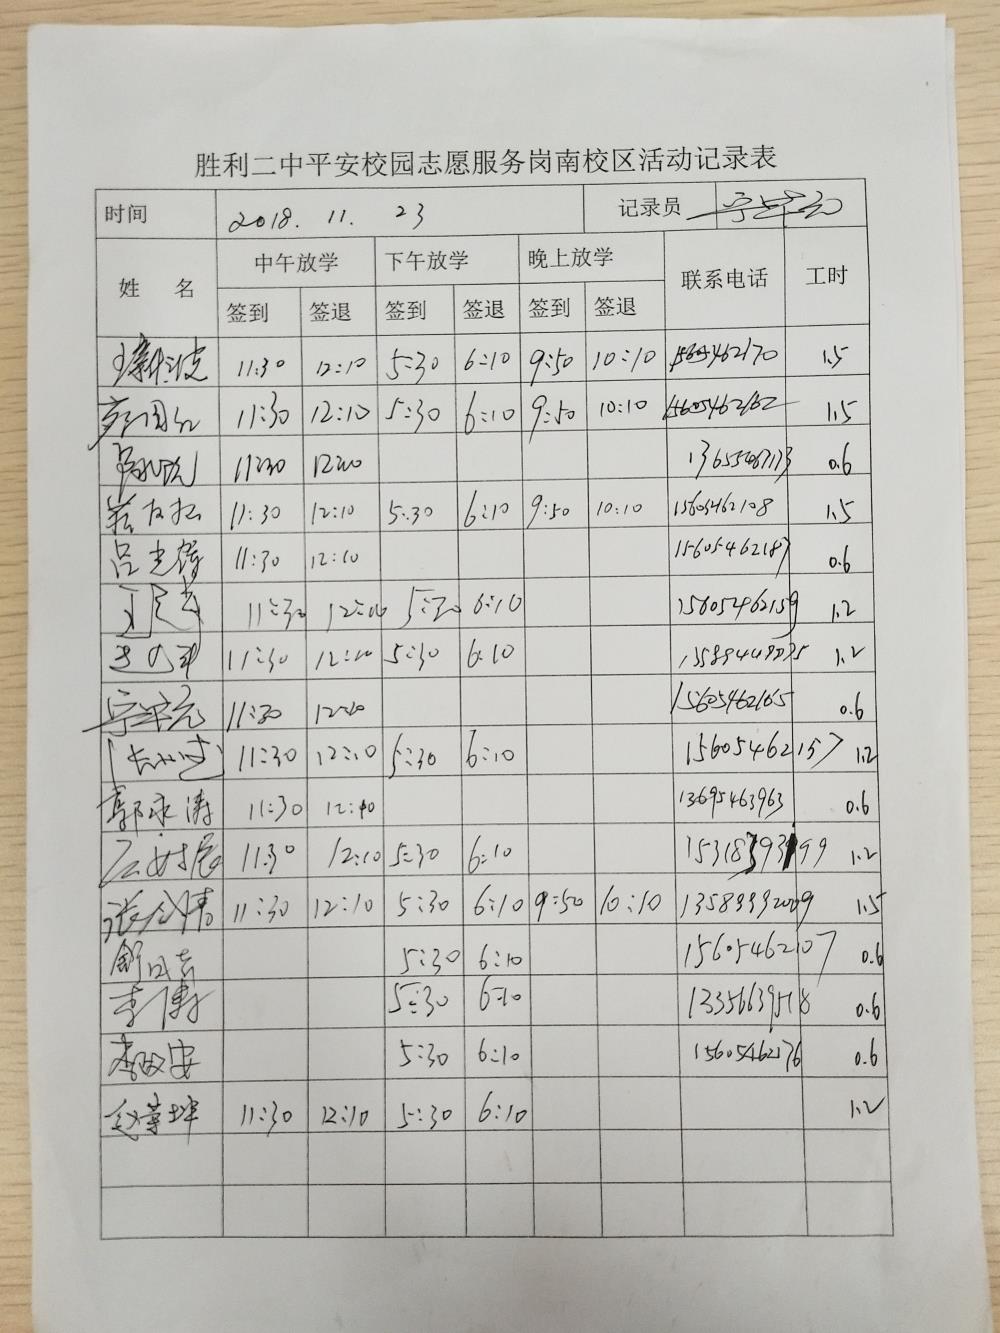 胜利二中平安校园志愿服务岗南校区活动记录表
时间 2018. 11. 23 记录员
姓 名 中午放学 下午放学 晚上放学 联系电话 工时
签到 签退 签到 签退 签到 签退
11:30 12:10 5:30 6:10 9:50 10:10 15605462170 1.5
11:30 12:10 5:30 6:10 9:50 10:10 15605462162 1.5
11:30 12:10 0.6
11:30 12:10 5:30 6:10 9:50 10:10 15605462108 1.5
11:30 12:10 15605462187 0.6
11:30 12:10 5:30 6:10 15605462159 1.2
11:30 12:10 5:30 6:10 1.2
11:30 12:10 15605462165 0.6
11:30 12:10 5:30 6:10 15605462157 1.2
郭永涛 11:30 12:10 13695463963 0.6
11:30 12:10 5:30 6:10 1.2
11:30 12:10 5:30 6:10 9:50 10:10 13589992009 1.5
5:30 6:10 15605462107 0.6
李涛 5:30 6:10 13356639518 0.6
李政安 5:30 6:10 15605462176 0.6
11:30 12:10 5:30 6:10 1.2